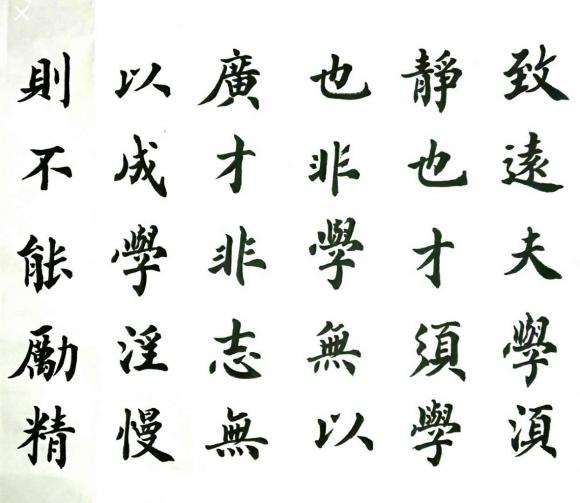 致遠夫學湏
靜也才須學
也非學無以
廣才非志無
以成學淫慢
則不能勵精